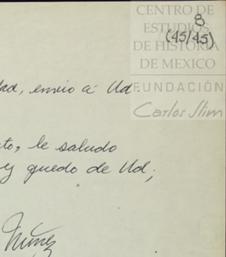 CENTRO DE
ESTUDIOS
DE HISTORIA
DE MEXICO
FUNDACIÓN
Carlos Slim
8
(45/45)
dad, envio a Ud.
to, le saludo
y quedo de Ud;
Núñez